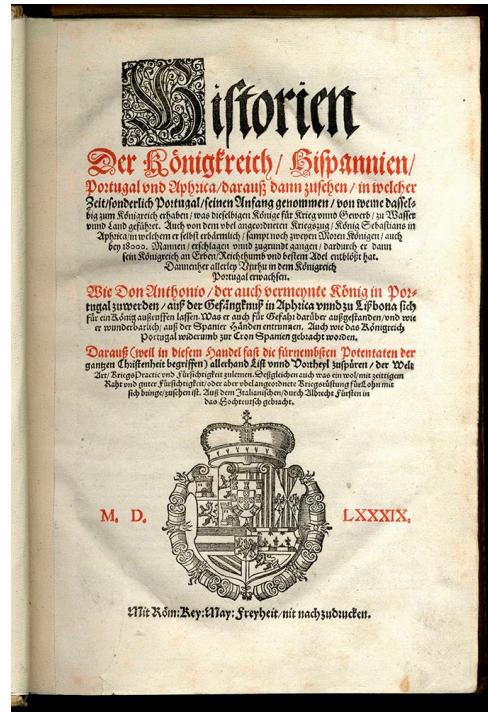 Historien
Der Königkreich/ Hispannien/
Portugal vnd Aphrica/ darauß dann zusehen/ in welcher
Zeit/ sonderlich Portugal/ seinen Anfang genommen/ von weme dasselbig
big zum Königreich erhaben/ was dieselbigen Könige für Krieg vnnd Gewerb/ zu Wasser
vnnd Land geführet. Auch von dem vbel angeordneten Kriegszug/ König Sebastians in
Aphrica/ in welchem er selbst erbärmlich/ sampt noch zweyen Moren Königen/ auch
bey 18000. Mannen/ erschlagen vnnd zugrundt gangen/ dardurch er dann
sein Königreich an Erben/ Reichthumb vnd bestem Adel entblößt hat.
Dannenher allerley Vnrhu in dem Königreich
Portugal erwachsen.
Wie Don Anthonio/ der auch vermeynte König in Por-
tugal zuwerden/ auß der Gefängknuß in Aphrica vnnd zu Lißbona sich
für ein König außruffen lassen. Was er auch für Gefahr darüber außgestanden/ vnd wie
er wunderbarlich/ auß der Spanier Händen entrunnen. Auch wie das Königreich
Portugal widerumb zur Cron Spanien gebracht worden.
Darauß (weil in diesem Handel fast die fürnembsten Potentaten der
gantzen Christenheit begriffen) allerhand List vnnd Vortheyl zuspüren/ der Welt
Art/ Kriegs Practic vnd Fürsichtigkeit zulernen. Deßgleichen auch was ein wol/ mit zeittigem
Raht vnd guter Fürsichtigkeit/ oder aber vbel angeordnete Kriegsrüstung für Lohn mit
sich bringe/ zusehen ist. Auß dem Italianischen/ durch Albrecht Fürsten in
das Hochteutsch gebracht.
M. D. LXXXIX.
Mit Röm: Key: May: Freyheit/ nit nachzudrucken.